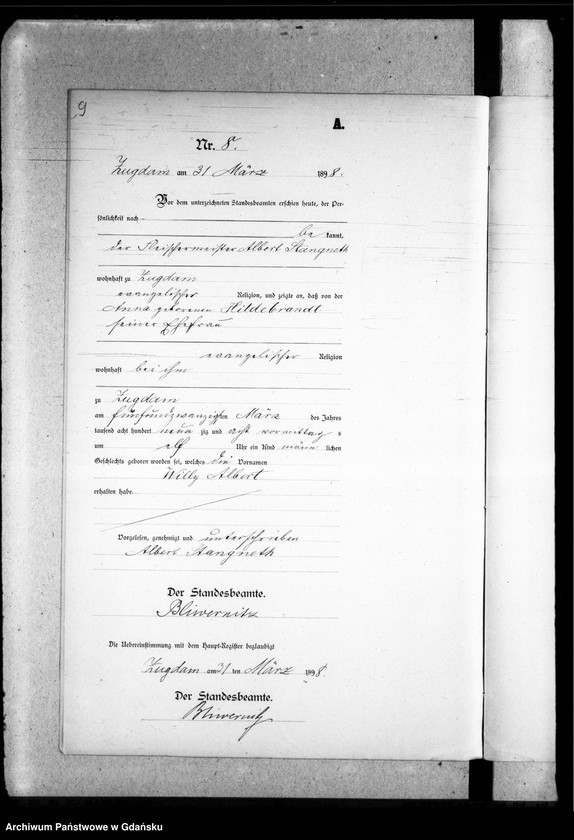 9
A.
Nr. 8.
Zugdam am 31 März 1898.
Vor dem unterzeichneten Standesbeamten erschien heute, der Per-
sönlichkeit nach
be kannt,
der Fleischermeister Albert Stangneth
wohnhaft zu Zugdam
evangelischer Religion, und zeigte an, daß von der
Anna geborenen Hildebrandt
seiner Ehefrau
evangelischer Religion
wohnhaft bei ihm
zu Zugdam
am fünfundzwanzigsten März des Jahres
tausend acht hundert neun zig und acht vormittag s
um elf Uhr ein Kind männ lichen
Geschlechts geboren worden sei, welches die Vornamen
Willy Albert
erhalten habe.
Vorgelesen, genehmigt und unterschrieben
Albert Stangneth
Der Standesbeamte.
Bliwernitz
Die Uebereinstimmung mit dem Haupt-Register beglaubigt
Zugdam am 31 ten März 1898.
Der Standesbeamte.
Bliwernitz
Archiwum Państwowe w Gdańsku